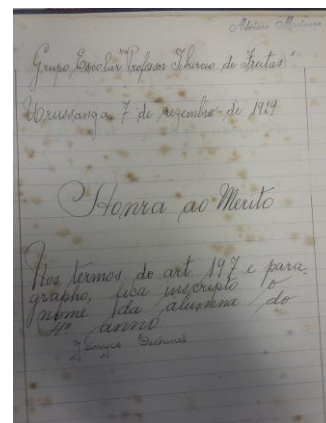 Grupo Escolar "Professor Tiburcio de Freitas"
Urussanga 7 de dezembro de 1929
Honra ao Merito
Nos termos do art 197 e para-
grapho, fica inscripto o
nome da alumna do
4º anno